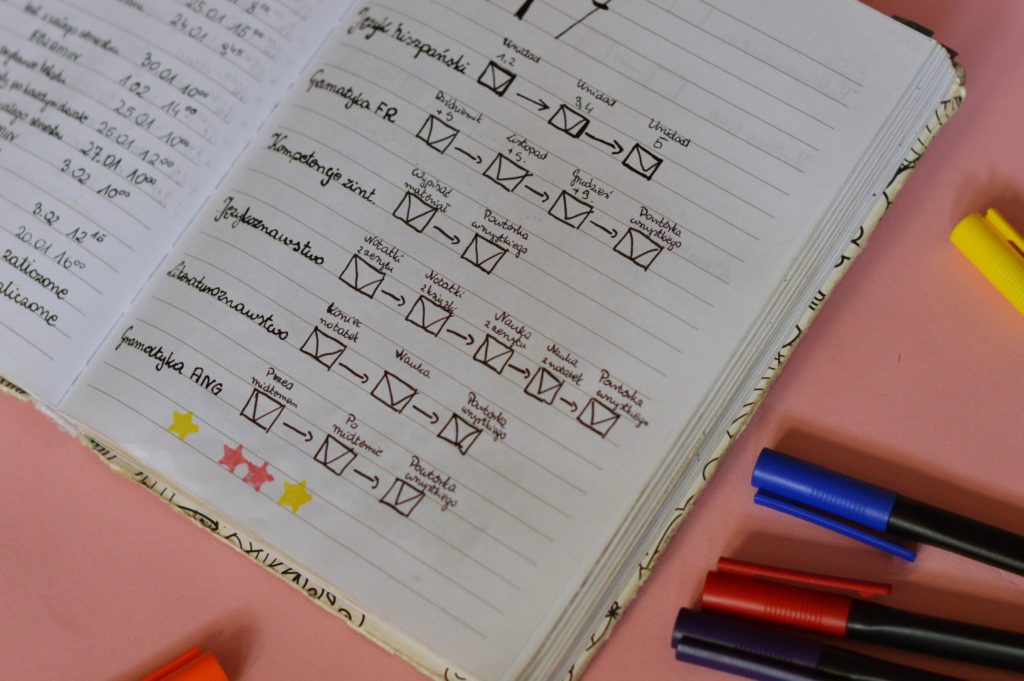 8⁰⁰
25.01 15⁰⁰
24.01 8⁴⁵
30.01 10⁰⁰
1.02 14⁰⁰
25.01 10⁰⁰
26.01 12⁰⁰
27.01 10⁰⁰
3.02 10⁰⁰
3.02 12¹⁵
20.01 16⁰⁰
zaliczone
zaliczone
Język hiszpański
Unidad 1,2 → Unidad 3,4 → Unidad 5
Gramatyka FR
Październik + ś. → Listopad + ś. → Grudzień + ś. → Powtórka wszystkiego
Kompetencje zint.
Wypisać materiał → Powtórka wszystkiego
Językoznawstwo
Notatki z zeszytu → Notatki z książki → Nauka z zeszytu → Nauka z notatek → Powtórka wszystkiego
Literaturoznawstwo
Koniec notatek → Nauka → Powtórka wszystkiego
Gramatyka ANG
Przed midtermem → Po midtermie → Powtórka wszystkiego